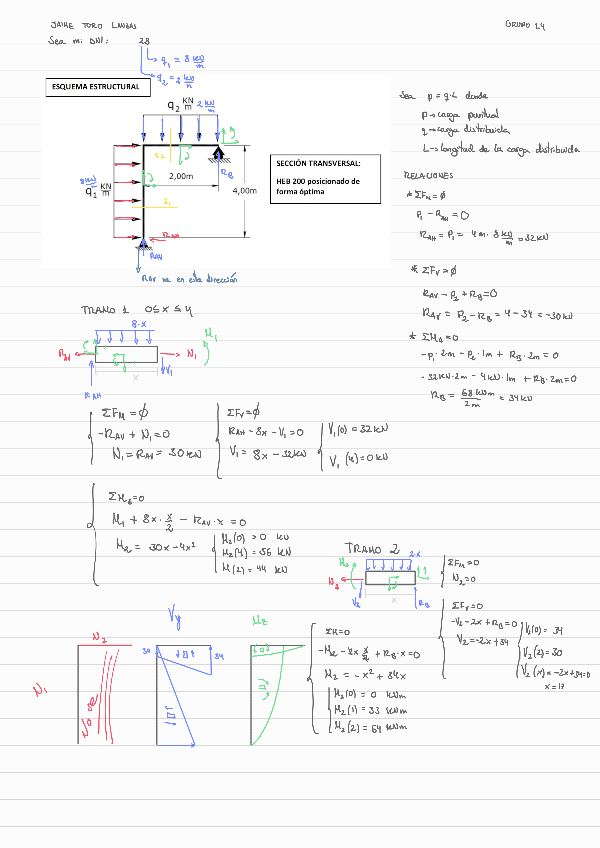 JAIME TORO
GRUPO 14
Sea mi DNI: 28
q1 = 8 kN/m
q2 = 2 kN/m
ESQUEMA ESTRUCTURAL
q2 KN/m 2 kN/m
8 kN/m
q1 KN/m
2,00m
4,00m
RB
RAH
RAV
RAV va en esta dirección
SECCIÓN TRANSVERSAL:
HEB 200 posicionado de forma óptima
Sea p = q·L donde
p→carga puntual
q→carga distribuida
L→longitud de la carga distribuida
RELACIONES
* ΣFH = ∅
P1 - RAH = 0
RAH = P1 = 4m · 8 kN/m = 32 kN
* ΣFV = ∅
RAV - P2 + RB = 0
RAV = P2 - RB = 4 - 34 = -30 kN
* ΣMA = 0
-P1·2m - P2·1m + RB·2m = 0
-32kN·2m - 4kN·1m + RB·2m = 0
RB = 68 kNm / 2m = 34 kN
TRAMO 1 0≤x≤4
8·x
RAV
N1
M1
V1
x
RAH
ΣFH = ∅
-RAV + N1 = 0
N1 = RAH = 30 kN
ΣFV = ∅
RAH - 8x - V1 = 0
V1 = 8x - 32kN
V1(0) = 32kN
V1(4) = 0kN
ΣMB = 0
M1 + 8x · x/2 - RAV·x = 0
M2 = 30x - 4x²
M2(0) = 0 kN
M2(4) = 56 kN
M(2) = 44 kN
TRAMO 2
2·x
M2
N2
V2
x
RB
ΣFH = 0
N2 = 0
ΣFV = 0
-V2 - 2x + RB = 0
V2 = -2x + 34
V2(0) = 34
V2(2) = 30
V2(x) = -2x + 34 = 0
x = 17
ΣM = 0
-M2 - 2x x/2 + RB·x = 0
M2 = -x² + 34x
M2(0) = 0 kNm
M2(1) = 33 kNm
M2(2) = 64 kNm
N2
N1
Vy
30
34
Mz